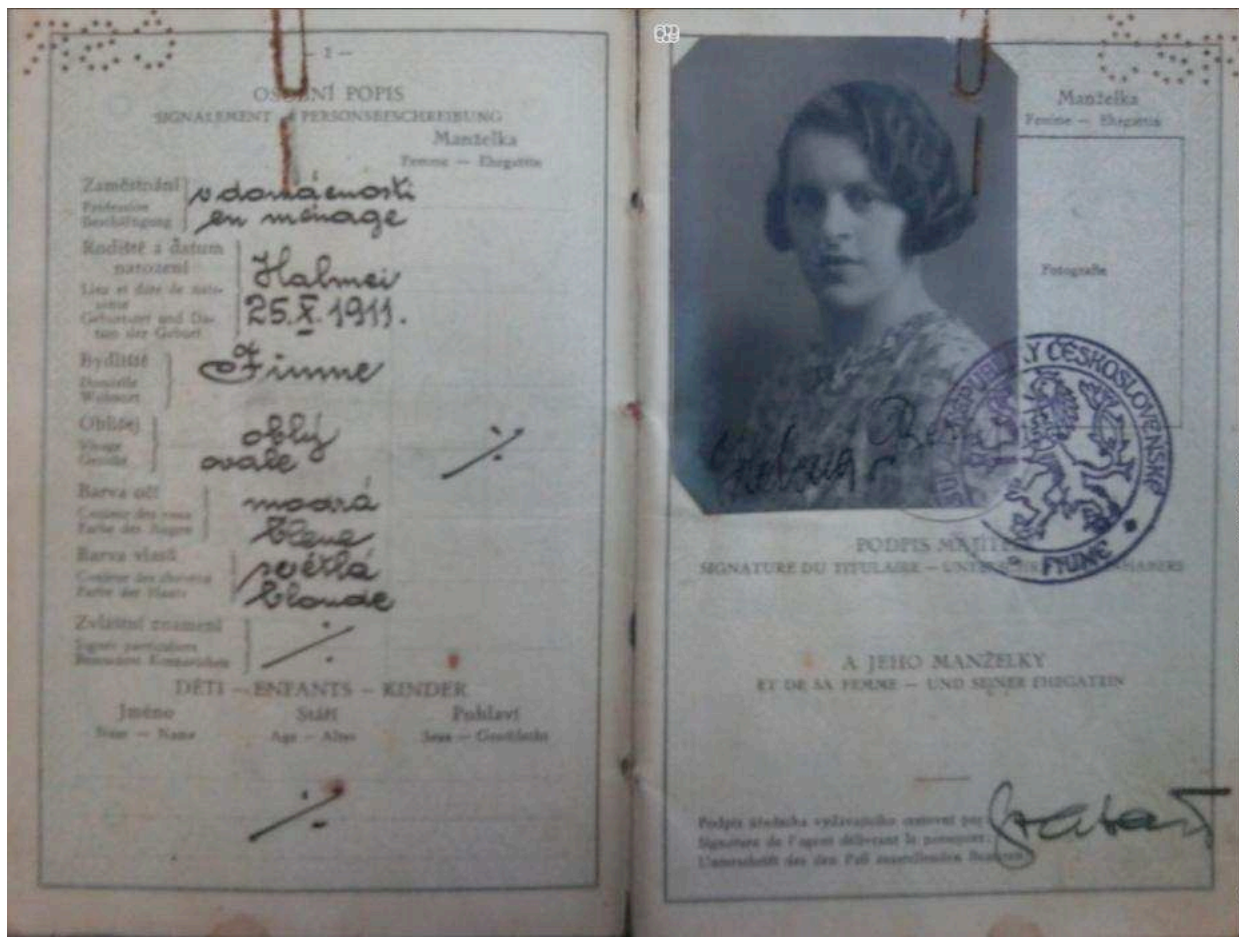 — 2 —
OSOBNÍ POPIS
SIGNALEMENT PERSONSBESCHREIBUNG
Manželka
Femme — Ehegattin
Zaměstnání
Profession
Beschäftigung
v domácnosti
en ménage
Rodiště a datum
narození
Lieu et date de nais-
sance
Geburtsort und Da-
tum der Geburt
Halmei
25.X.1911.
Bydliště
Domicile
Wohnort
Fiume
Obličej
Visage
Gesicht
oblý
ovale
Barva očí
Couleur des yeux
Farbe der Augen
modrá
bleue
Barva vlasů
Couleur des cheveux
Farbe der Haare
světlá
blonde
Zvláštní znamení
Signes particuliers
Besondere Kennzeichen
DĚTI — ENFANTS — KINDER
Jméno Stáří Pohlaví
Nom — Name Age — Alter Sexe — Geschlecht
Manželka
Femme — Ehegattin
Fotografie
REPUBLIKY ČESKOSLOVENSKÉ
FIUME
PODPIS MAJITE
SIGNATURE DU TITULAIRE — UNTERS HABERS
A JEHO MANŽELKY
ET DE SA FEMME — UND SEINER EHEGATTIN
Podpis úředníka vydávajícího cestovní pas
Signature de l'agent délivrant le passeport:
Unterschrift des den Paß ausstellenden Beamten